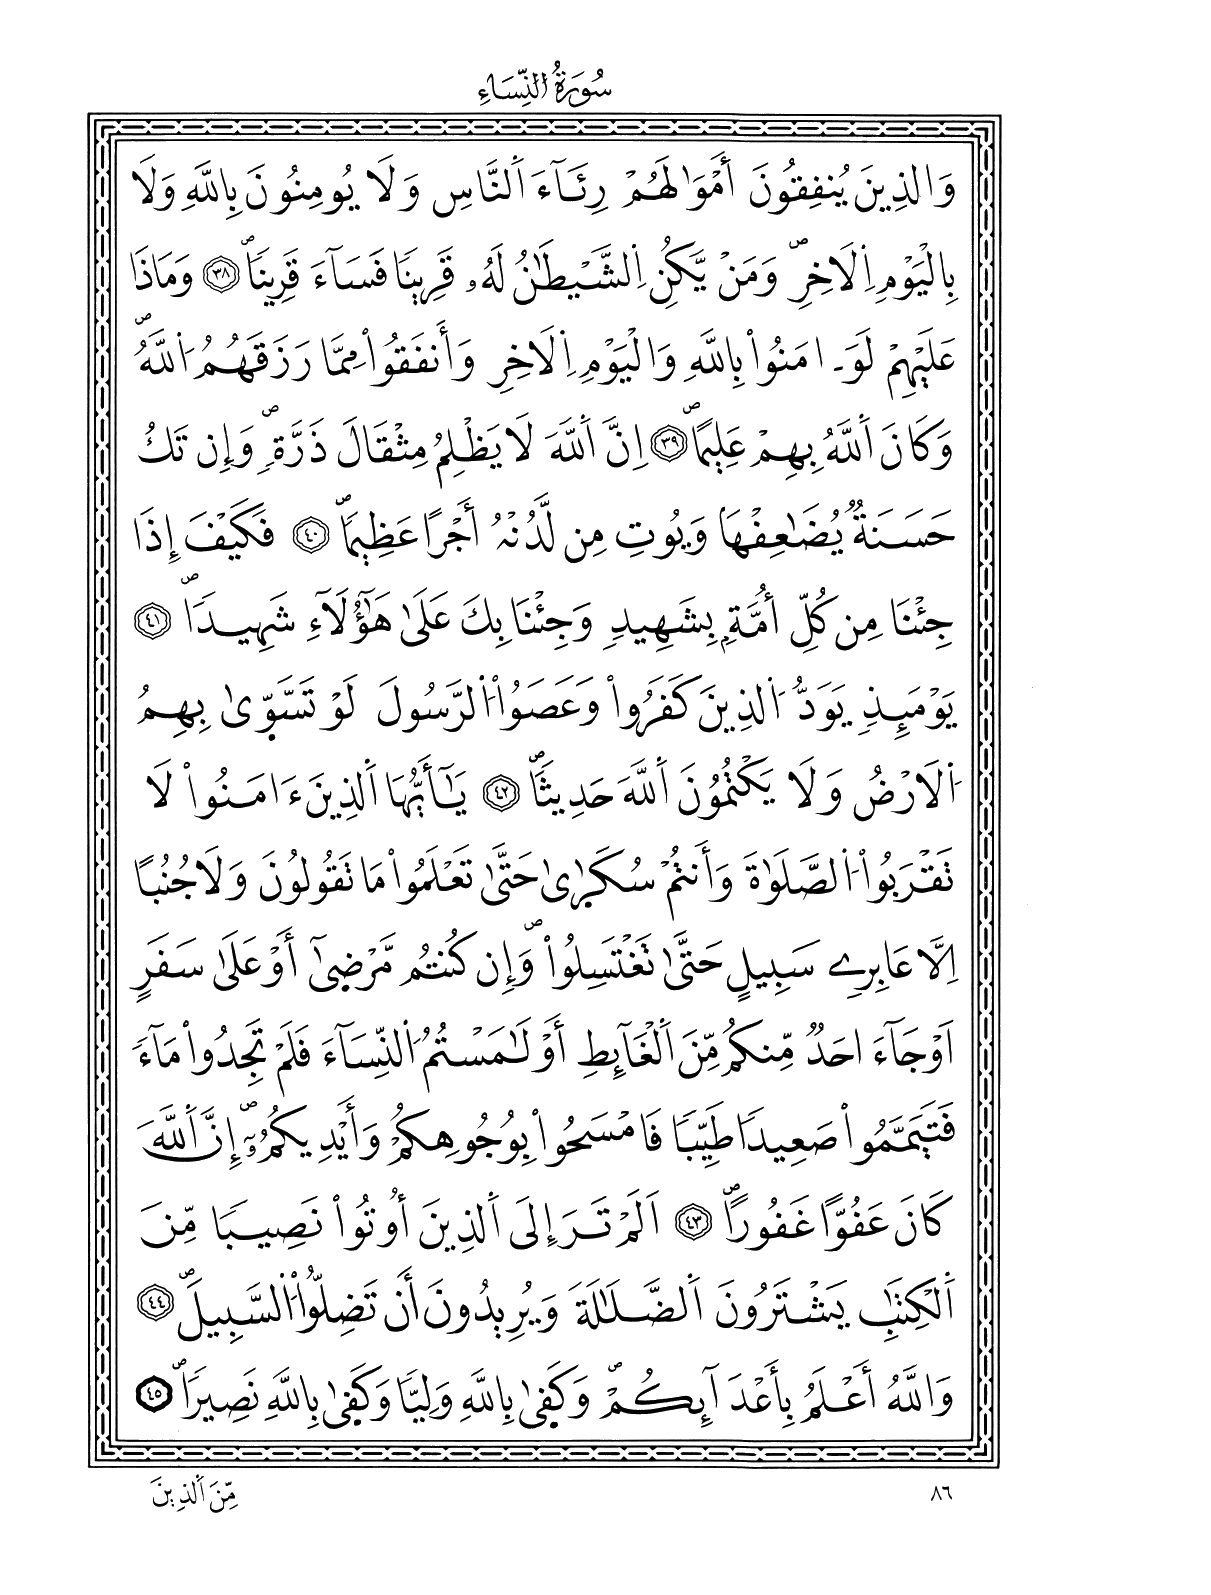 سُورَةُ النِّسَاءِ
وَالذِينَ يُنفِقُونَ أَمْوَٰلَهُمْ رِئَآءَ اَ۬لنَّاسِ وَلَا يُومِنُونَ بِاللَّهِ وَلَا
بِالْيَوْمِ اِ۬لَاخِرِۖ وَمَنْ يَّكُنِ اِ۬لشَّيْطَٰنُ لَهُۥ قَرِيناٗ فَسَآءَ قَرِيناٗۖ ٣٨ وَمَاذَا
عَلَيْهِمْ لَوَ ـ امَنُواْ بِاللَّهِ وَالْيَوْمِ اِ۬لَاخِرِ وَأَنفَقُواْ مِمَّا رَزَقَهُمُ اُ۬للَّهُۖ
وَكَانَ اَ۬للَّهُ بِهِمْ عَلِيماًۖ ٣٩ اِنَّ اَ۬للَّهَ لَا يَظْلِمُ مِثْقَالَ ذَرَّةٖۖ وَإِن تَكُ
حَسَنَةٌ يُضَٰعِفْهَا وَيُوتِ مِن لَّدُنْهُ أَجْراً عَظِيماٗۖ ٤٠ فَكَيْفَ إِذَا
جِئْنَا مِن كُلِّ أُمَّةِۢ بِشَهِيدٖ وَجِئْنَا بِكَ عَلَىٰ هَٰٓؤُلَآءِ شَهِيداٗۖ ٤١
يَوْمَئِذٖ يَوَدُّ اُ۬لذِينَ كَفَرُواْ وَعَصَوُاْ اُ۬لرَّسُولَ لَوْ تَسَّوّ۪ىٰ بِهِمُ
اُ۬لَارْضُ وَلَا يَكْتُمُونَ اَ۬للَّهَ حَدِيثاٗۖ ٤٢ يَٰٓأَيُّهَا اَ۬لذِينَ ءَامَنُواْ لَا
تَقْرَبُواْ اُ۬لصَّلَوٰةَ وَأَنتُمْ سُكَٰر۪ىٰ حَتَّىٰ تَعْلَمُواْ مَا تَقُولُونَ وَلَا جُنُباً
اِلَّا عَابِرِے سَبِيلٍ حَتَّىٰ تَغْتَسِلُواْۖ وَإِن كُنتُم مَّرْض۪ىٰٓ أَوْ عَلَىٰ سَفَرٍ
اَوْ جَآءَ احَدٌ مِّنكُم مِّنَ اَ۬لْغَآئِطِ أَوْ لَٰمَسْتُمُ اُ۬لنِّسَآءَ فَلَمْ تَجِدُواْ مَآءٗ
فَتَيَمَّمُواْ صَعِيداٗ طَيِّباٗ فَامْسَحُواْ بِوُجُوهِكُمْ وَأَيْدِيكُمُۥٓۖ إِنَّ اَ۬للَّهَ
كَانَ عَفُوّاً غَفُوراًۖ ٤٣ اَلَمْ تَرَ إِلَى اَ۬لذِينَ أُوتُواْ نَصِيباٗ مِّنَ
اَ۬لْكِتَٰبِ يَشْتَرُونَ اَ۬لضَّلَٰلَةَ وَيُرِيدُونَ أَن تَضِلُّواْ اُ۬لسَّبِيلَۖ ٤٤
وَاللَّهُ أَعْلَمُ بِأَعْدَآئِكُمْۖ وَكَف۪ىٰ بِاللَّهِ وَلِيّاٗ وَكَف۪ىٰ بِاللَّهِ نَصِيراٗۖ ٤٥
٨٦
مِّنَ اَ۬لذِينَ